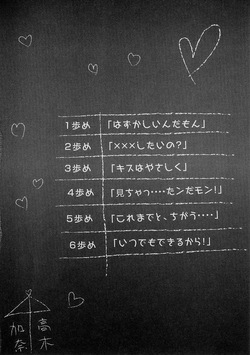 1歩め 「はずかしいんだもん」
2歩め 「×××したいの?」
3歩め 「キスはやさしく」
4歩め 「見ちゃっ‥‥たンだモン!」
5歩め 「これまでと、ちがう‥‥」
6歩め 「いつでもできるから!」
高木
加奈